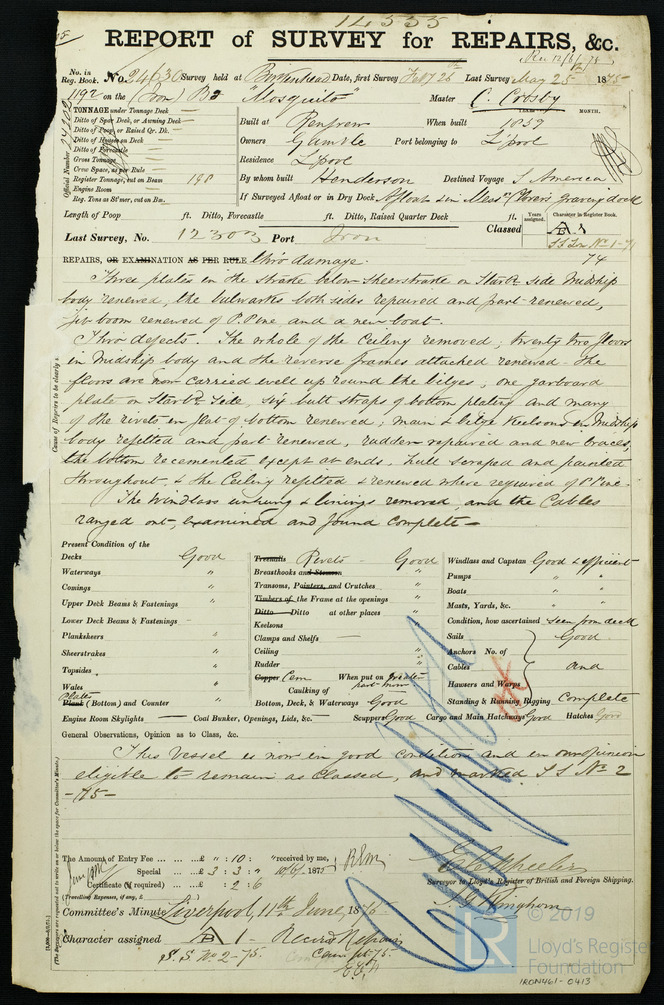 14555
REPORT of SURVEY for REPAIRS, &c.
No. in Reg. Book. No. 24630 Survey held at Birkenhead Date, first Survey Feby 26th Last Survey May 25th 1875
1192 on the (Iron) Bq "Mosquito" Master C. Crosby
TONNAGE under Tonnage Deck
Ditto of Spar Deck, or Awning Deck
Ditto of Poop, or Raised Qr. Dk.
Ditto of House on Deck
Ditto of Forecastle
Gross Tonnage
Crew Space, as per Rule
Register Tonnage, cut on Beam 198
Engine Room
Reg. Tons as St'mer, cut on Bm.
Official Number
YEARS. MONTH.
Built at Renfrew When built 1859
Owners Gamble Port belonging to L'pool
Residence L'pool
By whom built Henderson Destined Voyage S. America
If Surveyed Afloat or in Dry Dock Afloat & in Mess. Clover's graving dock
Length of Poop ft. Ditto, Forecastle ft. Ditto, Raised Quarter Deck ft.
Years assigned. Character in Register Book.
Last Survey, No. 12303 Port Iron Classed A1
74
REPAIRS, OR EXAMINATION AS PER RULE thro' damage.
Three plates in the strake below sheerstrake on Starbd. side Midship
body renewed, the bulwarks both sides repaired and part renewed,
jib boom renewed of P. Pine and a new boat.
Thro' defects. The whole of the Ceiling removed; twenty two floors
in Midship body and the reverse frames attached renewed - the
floors are now carried well up round the bilges, one garboard
plate on Starbd. side, six butt straps of bottom plating and many
of the rivets in flat of bottom renewed; main & bilge Keelsons in Midship
body refitted and part renewed, rudder repaired and new braces,
the bottom recemented except at ends, hull scraped and painted
throughout, & the Ceiling refitted & renewed where required of P. Pine
The Windlass unhung & linings removed, and the Cables
ranged out, examined and found complete -
Cause of Repairs to be clearly s
Present Condition of the
Decks Good
Waterways "
Comings "
Upper Deck Beams & Fastenings "
Lower Deck Beams & Fastenings -
Planksheers "
Sheerstrakes "
Topsides "
Wales "
Plates
Plank (Bottom) and Counter "
Treenails Rivets Good
Breasthooks and Stemson "
Transoms, Pointers, and Crutches "
Timbers of the Frame at the openings "
Ditto Ditto at other places "
Keelsons "
Clamps and Shelfs -
Ceiling "
Rudder "
Copper Cem When put on
part now
Caulking of
Bottom, Deck, & Waterways Good
Windlass and Capstan Good & efficient
Pumps " "
Boats " "
Masts, Yards, &c. " "
Condition, how ascertained seen from deck
Sails Good
Anchors No. of
Cables and
Hawsers and Warps
Standing & Running Rigging Complete
Engine Room Skylights - Coal Bunker, Openings, Lids, &c. - Scuppers Good Cargo and Main Hatchways Good Hatches Good
General Observations, Opinion as to Class, &c.
This Vessel is now in good condition and in our opinion
eligible to remain as Classed, and marked S S No. 2
-75-
The Amount of Entry Fee £ " : 10 : " received by me,
Special £ 3 : 3 : " 10/6/1875
Certificate (if required) : 2 : 6
(Travelling Expenses, if any, £
Surveyor to Lloyd's Register of British and Foreign Shipping.
Committee's Minute Liverpool, 11th June, 1875
Character assigned A 1 - Record Repairs
S. S. No. 2 - 75.
© 2019
LR
Lloyd's Register
Foundation
IRON461-0413